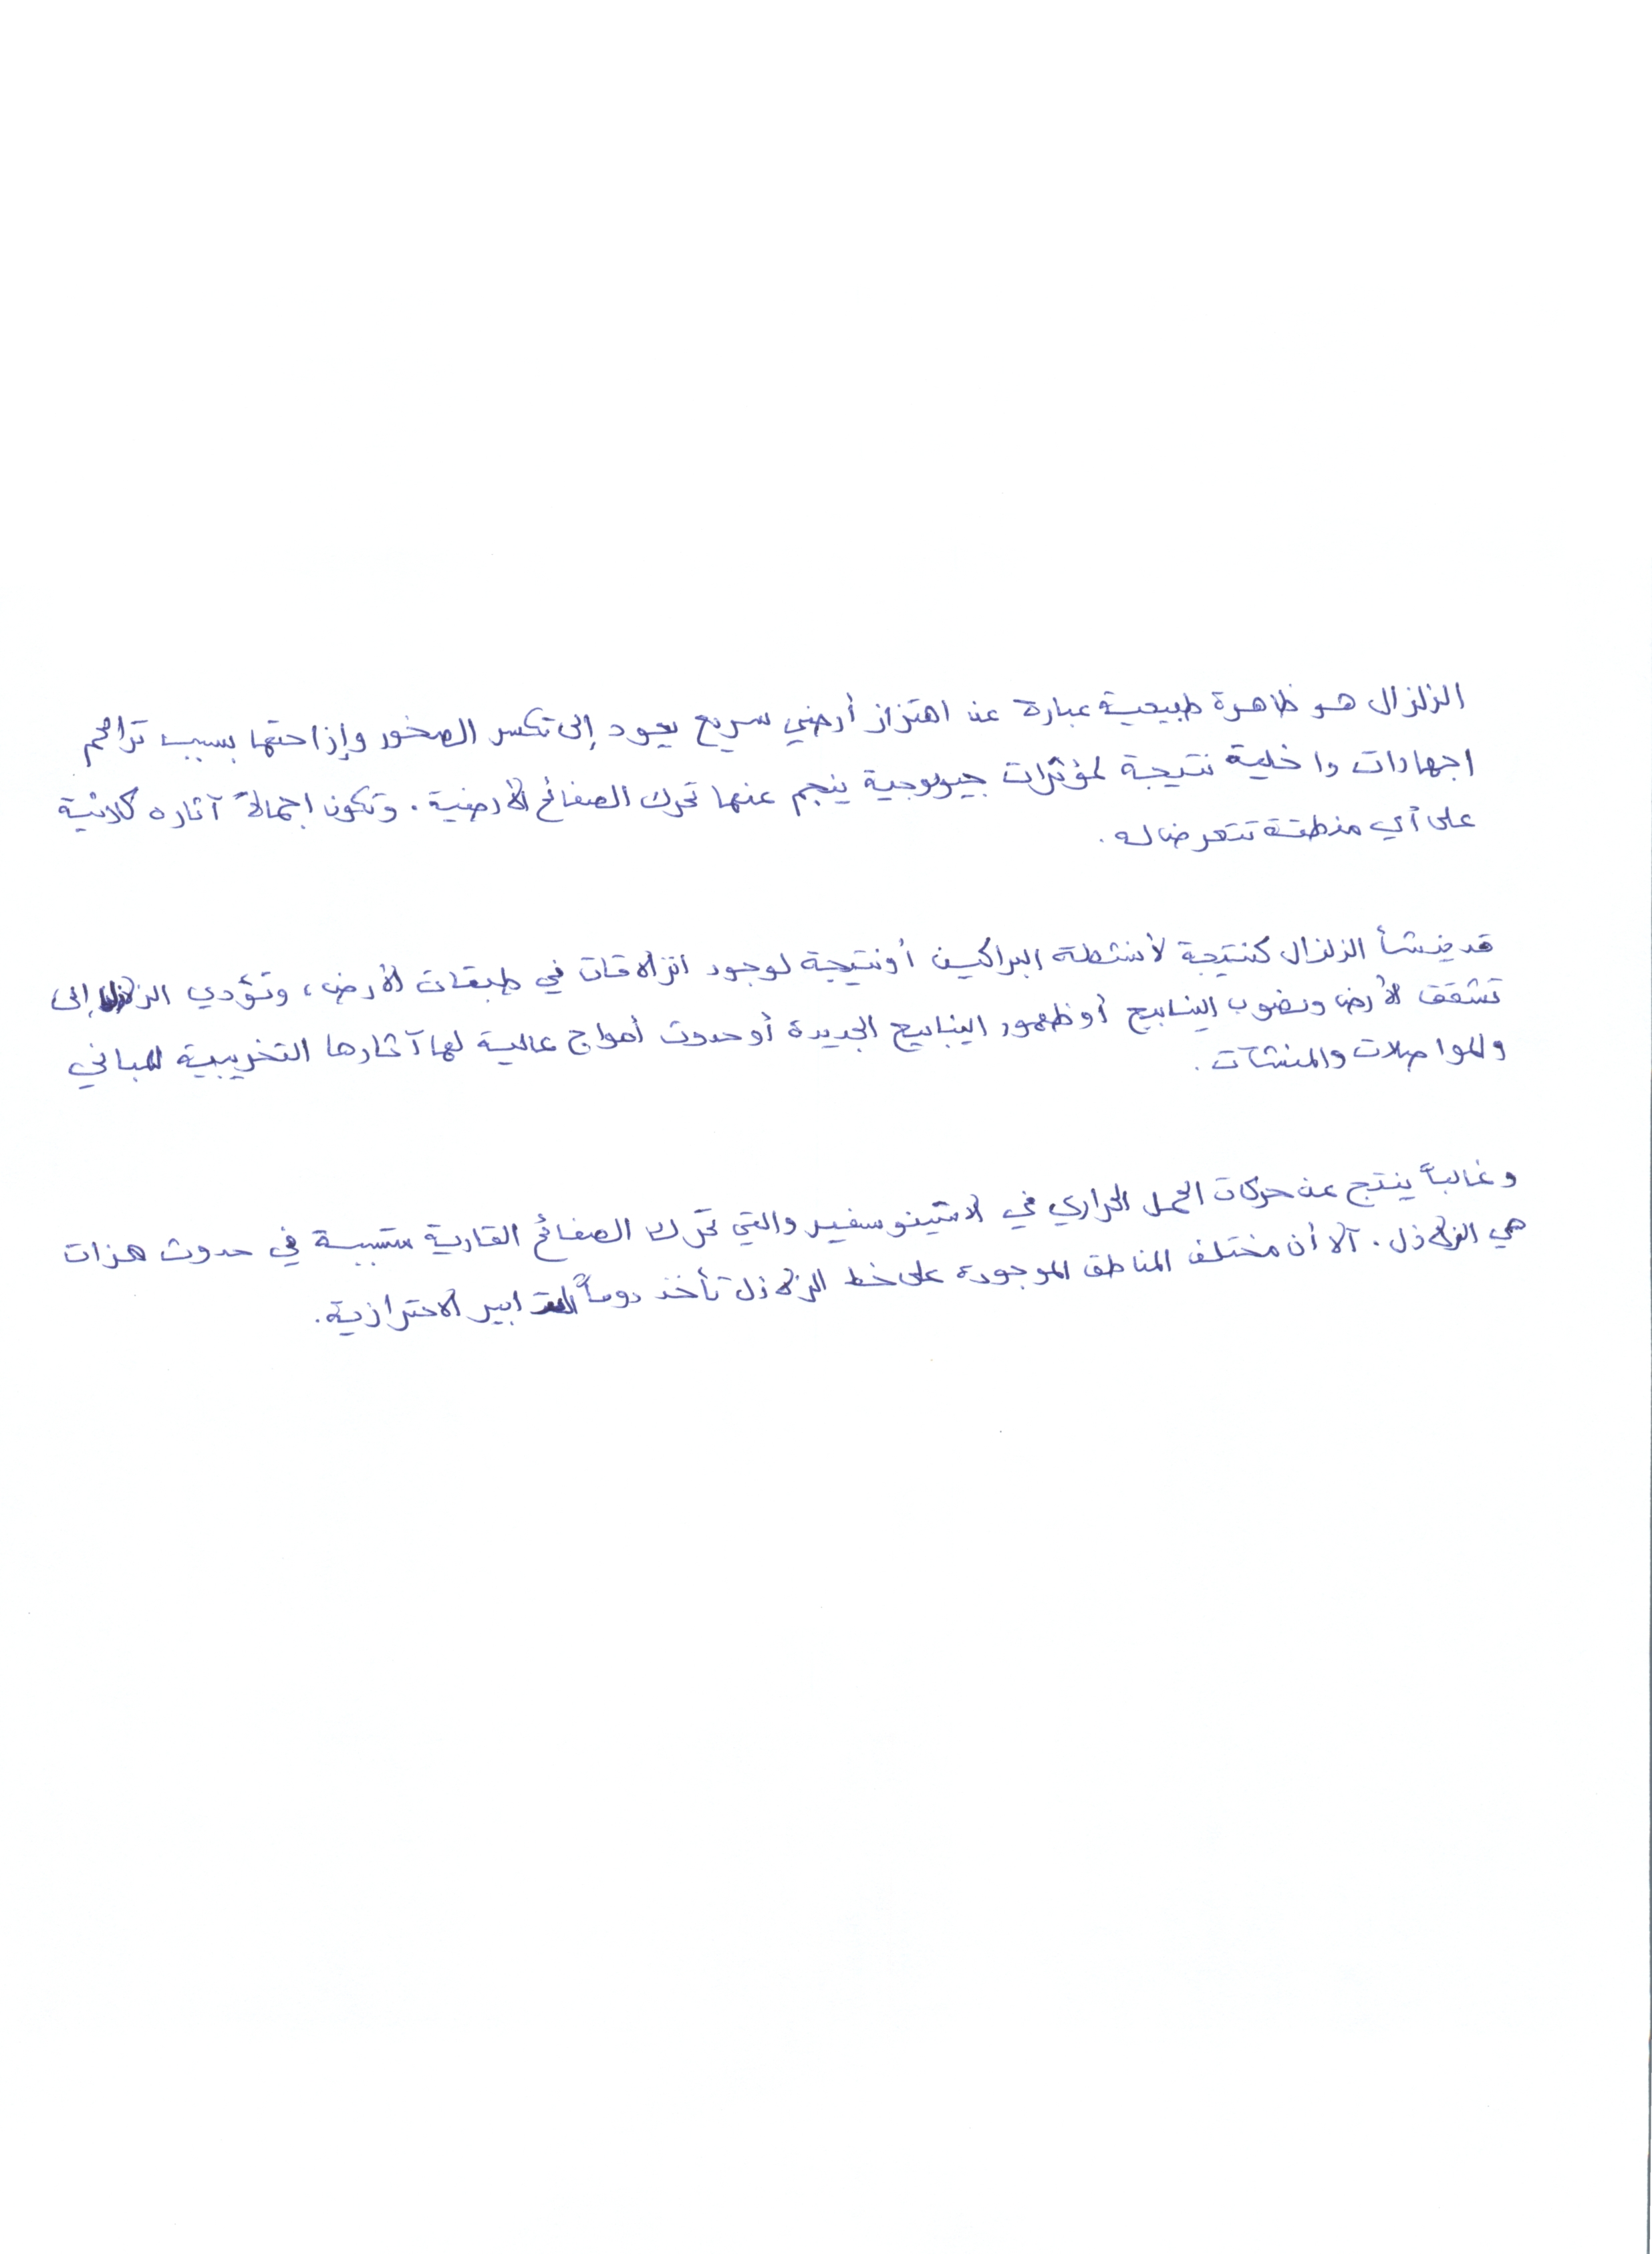 الزلزال هو ظاهرة طبيعية عبارة عن اهتزاز أرضي سريع يعود إلى تكسر الصخور وإزاحتها بسبب تراكم
اجهادات داخلية نتيجة لمؤثرات جيولوجية ينجم عنها تحرك الصفائح الأرضية. وتكون اجمالاً آثاره كارثية
على أي منطقة تتعرض له.
قد ينشأ الزلزال كنتيجة لأنشطة البراكين أو نتيجة لوجود انزلاقات في طبقات الأرض، وتؤدي الزلازل إلى
تشقق الأرض ونضوب الينابيع أو ظهور الينابيع الجديدة أو حدوث أمواج عالية لها آثارها التخريبية للمباني
والمواصلات والمنشآت.
وغالباً ينتج عن حركات الحمل الحراري في الاستينوسفير والتي تحرك الصفائح القارية متسببة في حدوث هزات
هي الزلازل. آلا أن مختلف المناطق الموجودة على خط الزلازل تأخذ دوماً التدابير الاحترازية.